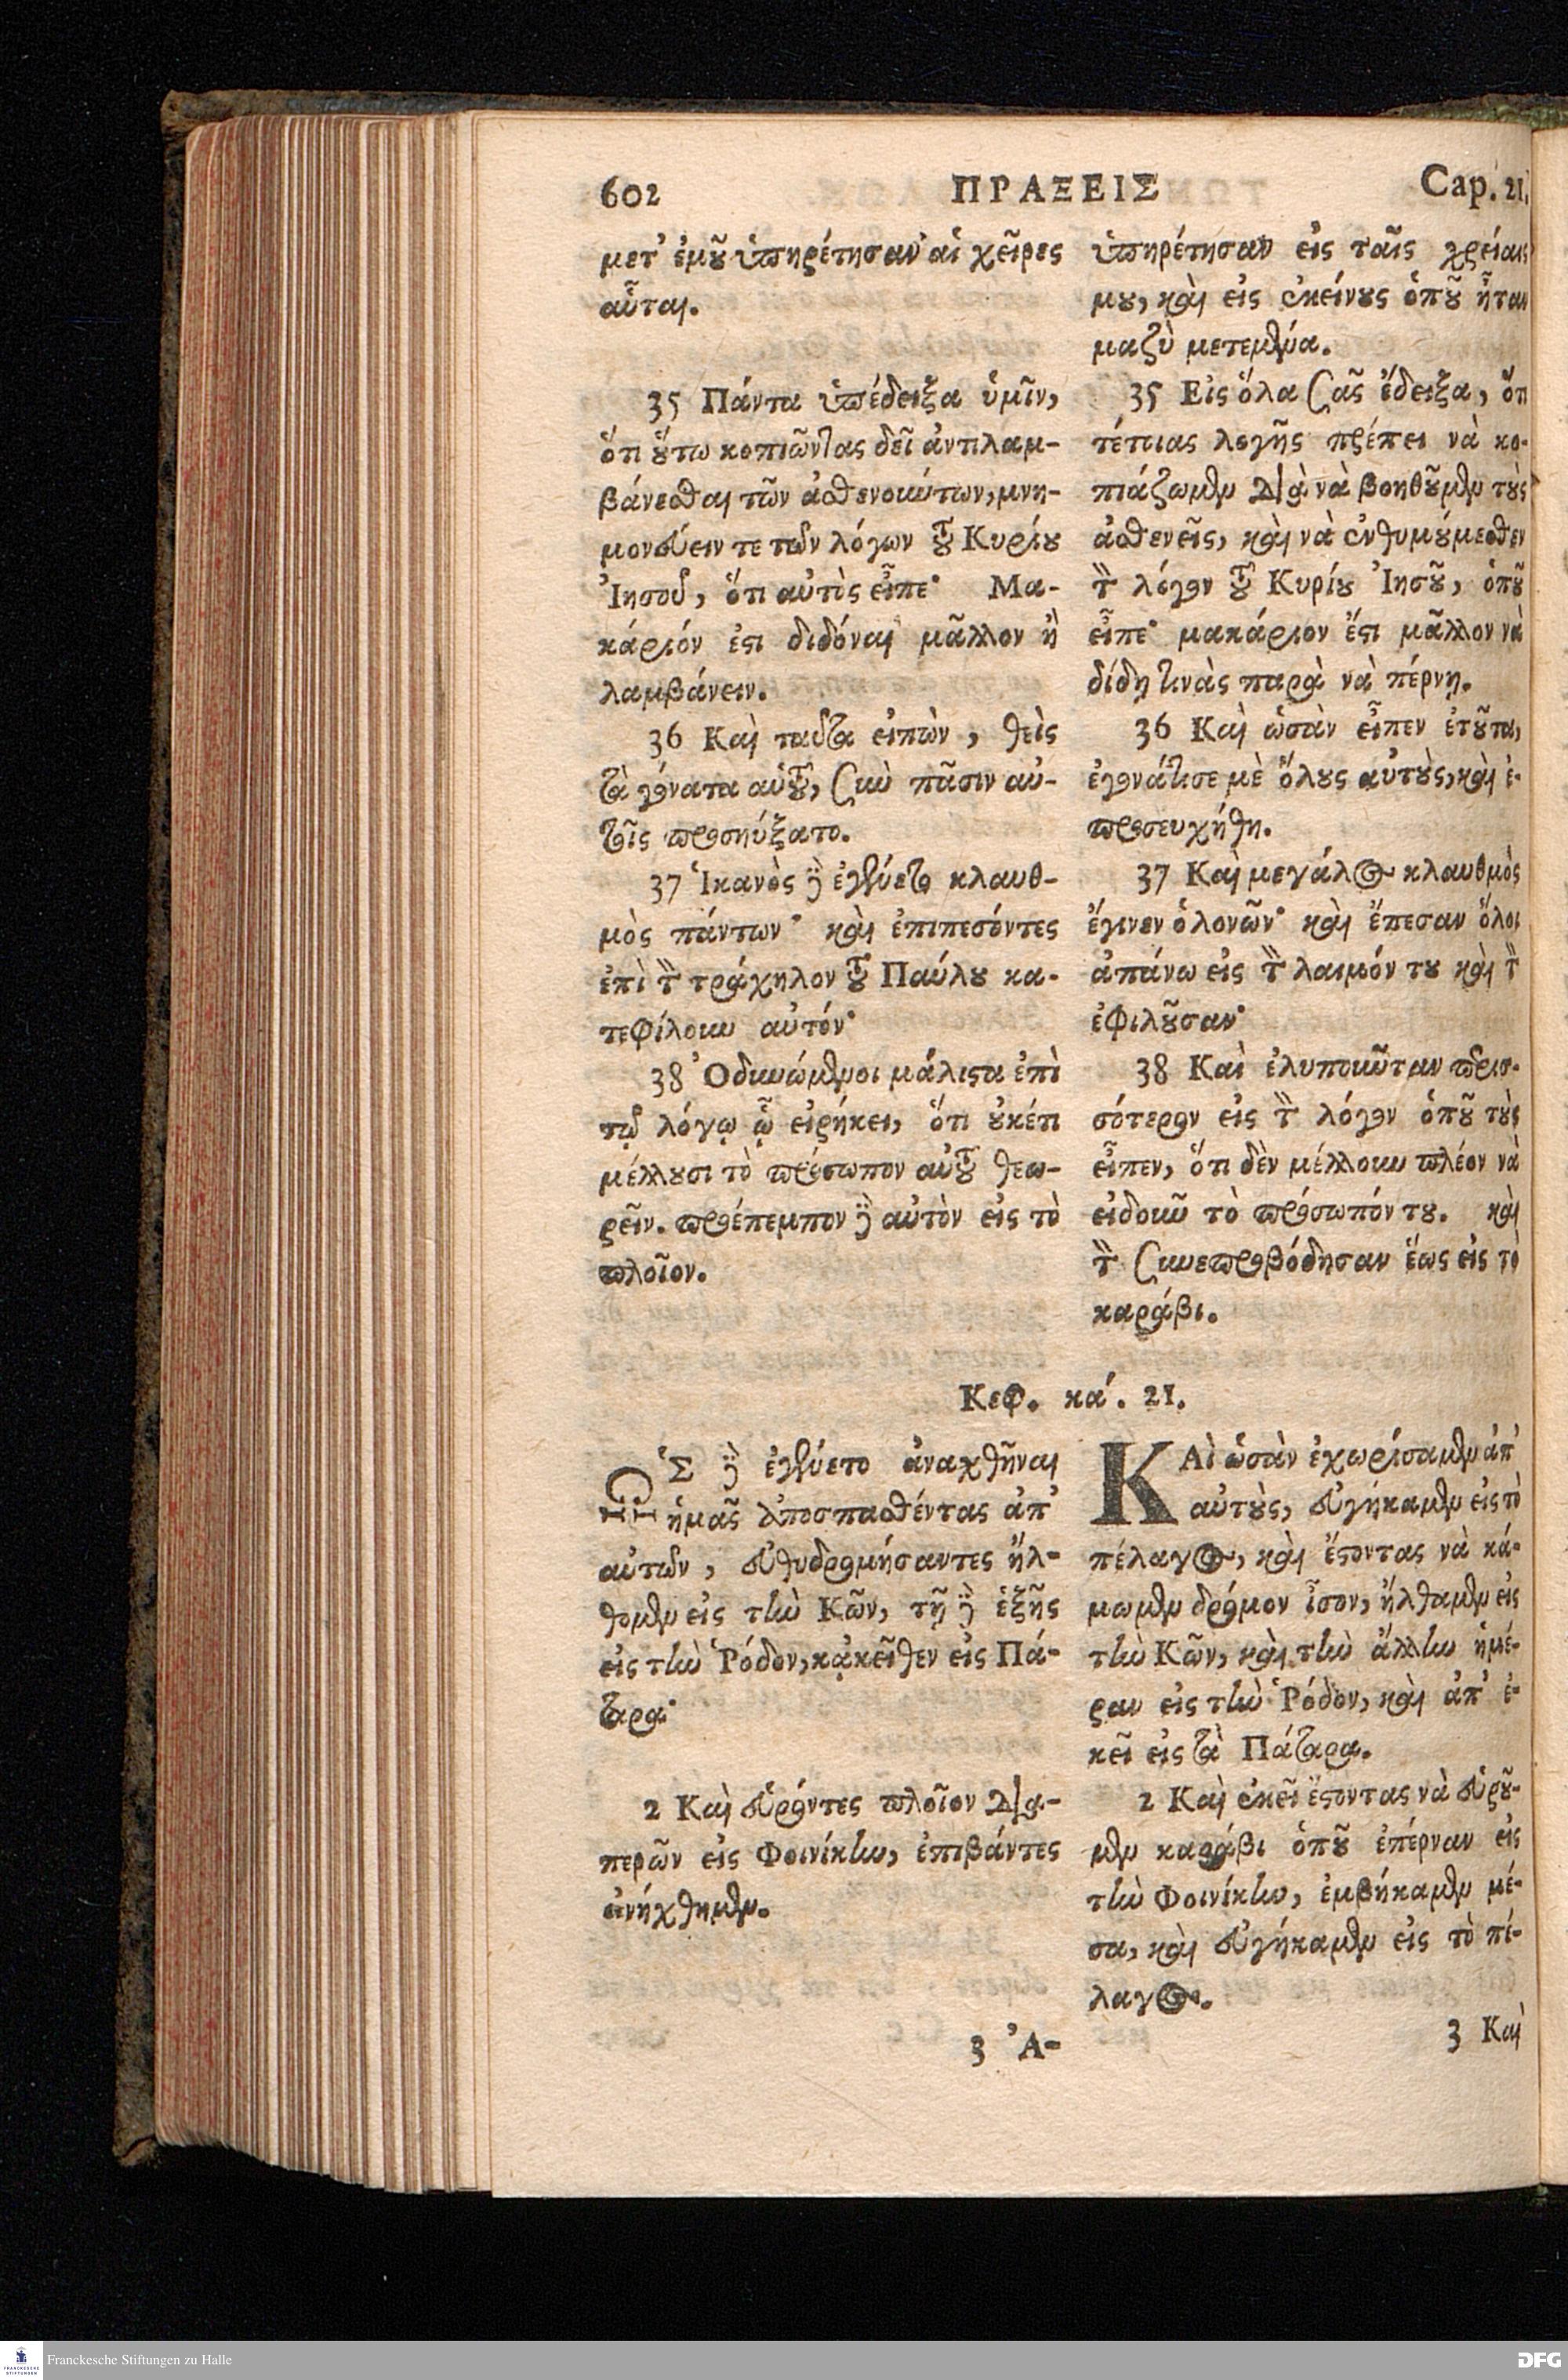 602 ΠΡΑΞΕΙΣ Cap. 21.
μετ' ἐμοῦ ὑπηρέτησαν αἱ χεῖρες
αὗται.
35 Πάντα ὑπέδειξα ὑμῖν,
ὅτι οὕτω κοπιῶντας δεῖ ἀντιλαμ-
βάνεσθαι τῶν ἀσθενούντων, μνη-
μονεύειν τε τῶν λόγων τοῦ Κυρίου
Ἰησοῦ, ὅτι αὐτὸς εἶπε· Μα-
κάριόν ἐστι διδόναι μᾶλλον ἢ
λαμβάνειν.
36 Καὶ ταῦτα εἰπὼν, θεὶς
τὰ γόνατα αὑτοῦ, σὺν πᾶσιν αὐ-
τοῖς προσηύξατο.
37 Ἱκανὸς δὲ ἐγένετο κλαυθ-
μὸς πάντων· καὶ ἐπιπεσόντες
ἐπὶ τὸν τράχηλον τοῦ Παύλου κα-
τεφίλουν αὐτόν·
38 Ὀδυνώμενοι μάλιστα ἐπὶ
τῷ λόγῳ ᾧ εἰρήκει, ὅτι οὐκέτι
μέλλουσι τὸ πρόσωπον αὐτοῦ θεω-
ρεῖν. προέπεμπον δὲ αὐτὸν εἰς τὸ
πλοῖον.
ὑπηρέτησαν εἰς ταῖς χρείαις
μου, καὶ εἰς ἐκείνους ὁποῦ ἦταν
μαζὺ μετεμένα.
35 Εἰς ὅλα σᾶς ἔδειξα, ὅτι
τέτοιας λογῆς πρέπει νὰ κο-
πιάζωμεν διὰ νὰ βοηθοῦμεν τοὺς
ἀσθενεῖς, καὶ νὰ ἐνθυμούμεσθεν
τὸν λόγον τοῦ Κυρίου Ἰησοῦ, ὁποῦ
εἶπε· μακάριον ἔστι μᾶλλον νὰ
δίδῃ τινὰς παρὰ νὰ πέρνῃ.
36 Καὶ ὡσὰν εἶπεν ἐτοῦτα,
ἐγονάτισε μὲ ὅλους αὐτοὺς, καὶ ἐ-
προσευχήθη.
37 Καὶ μεγάλος κλαυθμὸς
ἔγινεν ὁλονῶν· καὶ ἔπεσαν ὅλοι
ἀπάνω εἰς τὸν λαιμόν του καὶ τὸν
ἐφιλοῦσαν·
38 Καὶ ἐλυποῦνταν περισ-
σότερον εἰς τὸν λόγον ὁποῦ τοὺς
εἶπεν, ὅτι δὲν μέλλουν πλέον νὰ
εἰδοῦν τὸ πρόσωπόν του. καὶ
τὸν συνεπροβόδησαν ἕως εἰς τὸ
καράβι.
Κεφ. κα'. 21.
ὩΣ δὲ ἐγένετο ἀναχθῆναι
ἡμᾶς ἀποσπασθέντας ἀπ'
αὐτῶν, εὐθυδρομήσαντες ἤλ-
θομεν εἰς τὴν Κῶν, τῇ δὲ ἑξῆς
εἰς τὴν Ῥόδον, κᾀκεῖθεν εἰς Πά-
ταρα·
2 Καὶ εὑρόντες πλοῖον δια-
περῶν εἰς Φοινίκην, ἐπιβάντες
ἀνήχθημεν.
3 Ἀ-
ΚΑὶ ὡσὰν ἐχωρίσαμεν ἀπ'
αὐτοὺς, εὐγήκαμεν εἰς τὸ
πέλαγος, καὶ ἔστοντας νὰ κά-
μωμεν δρόμον ἶσον, ἤλθαμεν εἰς
τὴν Κῶν, καὶ τὴν ἄλλην ἡμέ-
ραν εἰς τὴν Ῥόδον, καὶ ἀπ' ἐ-
κεῖ εἰς τὰ Πάταρα.
2 Καὶ ἐκεῖ ἔστοντας νὰ εὑροῦ-
μεν καράβι ὁποῦ ἐπέρναν εἰς
τὴν Φοινίκην, ἐμβήκαμεν μέ-
σα, καὶ εὐγήκαμεν εἰς τὸ πέ-
λαγος.
3 Καὶ
Franckesche Stiftungen zu Halle
DFG